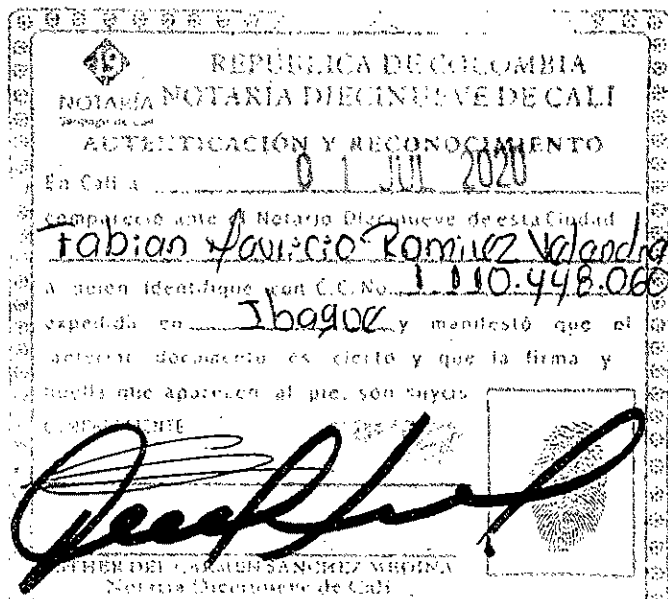 19
REPÚBLICA DE COLOMBIA
NOTARÍA NOTARÍA DIECINUEVE DE CALI
AUTENTICACIÓN Y RECONOCIMIENTO
En Cali a 01 JUL 2020
compareció ante el Notario Diecinueve de esta Ciudad
Fabian Mauricio Ramirez Velandia
a quien identifique con C.C. No. 1.110.448.060
expedida en Ibague y manifestó que el
anterior documento es cierto y que la firma y
huella que aparecen al pie, son suyas
COMPARECIENTE
ESTHER DEL CARMEN SANCHEZ MEDINA
Notaria Diecinueve de Cali